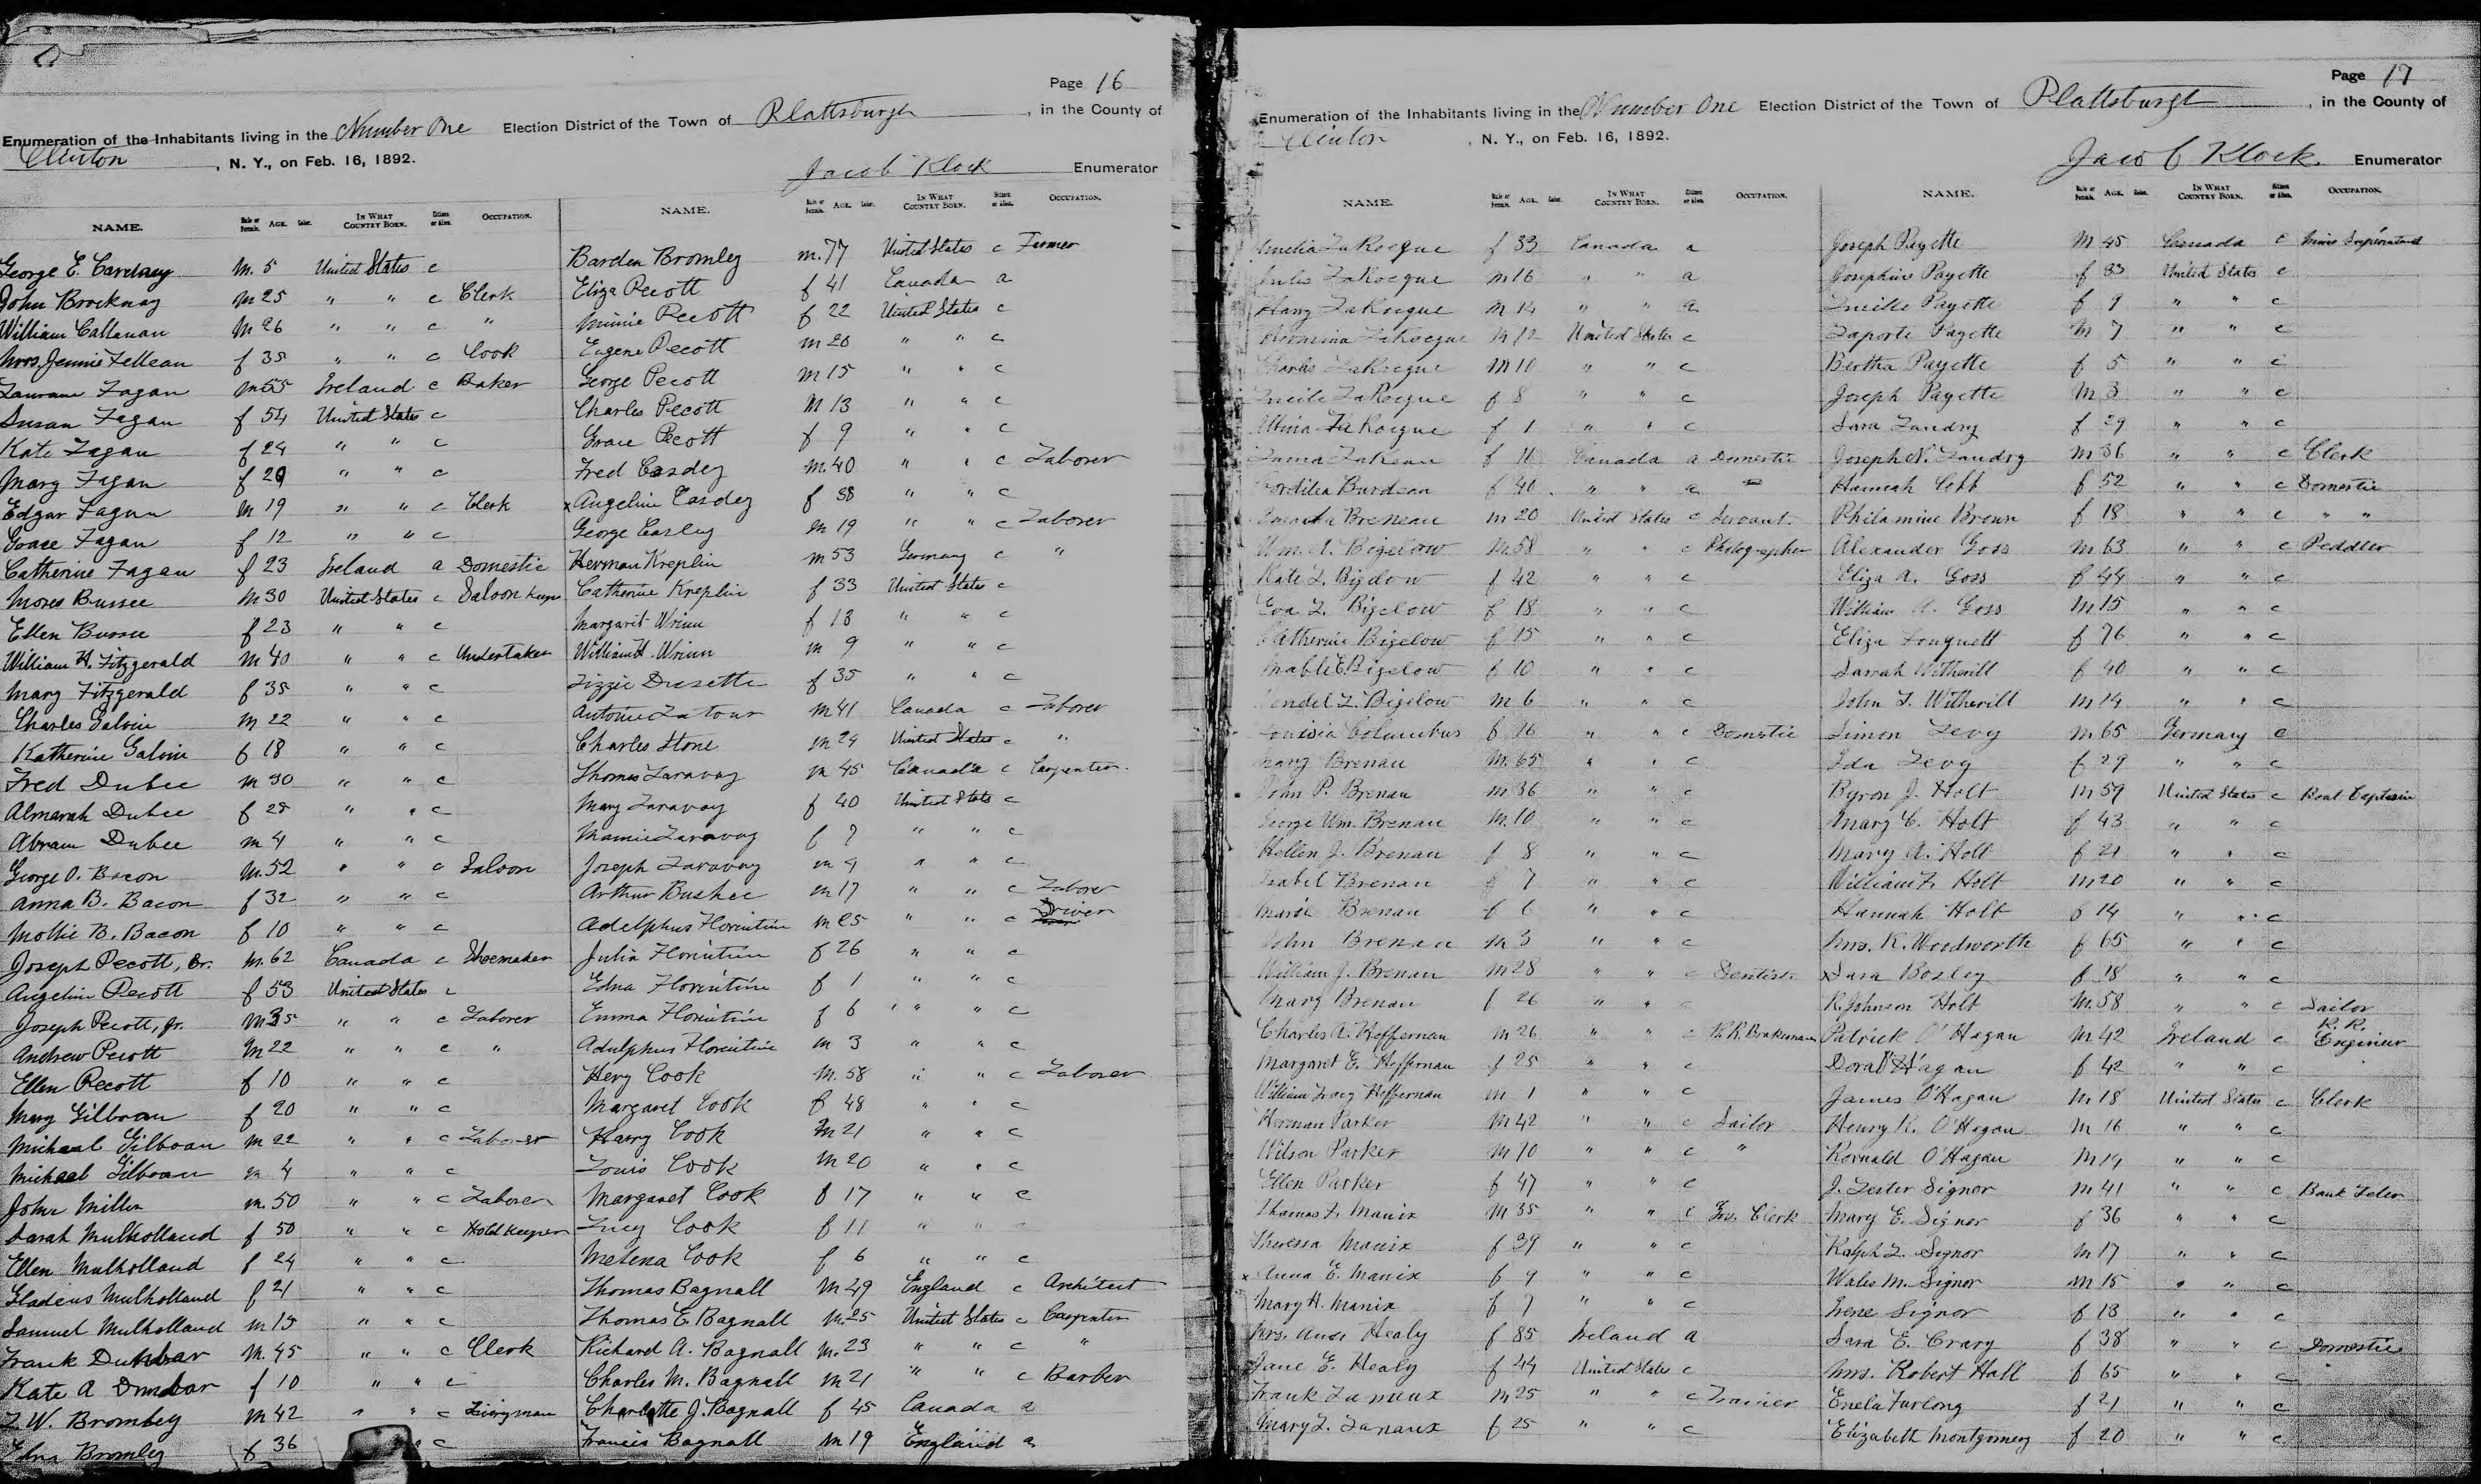 Page 16
Enumeration of the Inhabitants living in the Number One Election District of the Town of Plattsburgh, in the County of
Clinton, N. Y., on Feb. 16, 1892.
Jacob Klock Enumerator
NAME. Male or Female. AGE. Color. IN WHAT COUNTRY BORN. Citizen or Alien. OCCUPATION.
George E. m. 5 United States c
John Brockway m 25 " " c Clerk
William Callanan m 26 " " c "
Mrs. Jennie f 35 " " c Cook
Fagan m 55 Ireland c Baker
Susan Fagan f 54 United States c
Kate Fagan f 24 " " c
Mary Fagan f 29 " " c
Edgar Fagan m 19 " " c Clerk
Grace Fagan f 12 " " c
Catherine Fagan f 23 Ireland a Domestic
Moses Bussee m 30 United States c Saloon Keeper
Ellen Bussee f 23 " " c
William H. Fitzgerald m 40 " " c Undertaker
Mary Fitzgerald f 35 " " c
Charles Galvin m 22 " " c
Katherine Galvin f 18 " " c
Fred Dubee m 30 " " c
Almarah Dubee f 25 " " c
Abram Dubee m 4 " " c
George O. Bacon m. 52 " " c Saloon
Anna B. Bacon f 32 " " c
Mollie B. Bacon f 10 " " c
Joseph Pecott, Sr. m. 62 Canada c Shoemaker
Angeline Pecott f 53 United States c
Joseph Pecott, Jr. m 35 " " c Laborer
Andrew Pecott m 22 " " c "
Ellen Pecott f 10 " " c
Mary Gilboan f 20 " " c
Michael Gilboan m 22 " " c Laborer
Michael Gilboan m. 4 " " c
John Miller m. 50 " " c Laborer
Sarah Mulholland f 50 " " c Hotel Keeper
Ellen Mulholland f 24 " " c
Gladeus Mulholland f 21 " " c
Samuel Mulholland m 15 " " c
Frank Dunbar m. 45 " " c Clerk
Kate A Dunbar f 10 " " c
L. W. Bromley m 42 " " c Liveryman
Edna Bromley f 36 " c
NAME. Male or Female. AGE. Color. IN WHAT COUNTRY BORN. Citizen or Alien. OCCUPATION.
Barden Bromley m. 77 United States c Farmer
Eliza Pecott f 41 Canada a
Minnie Pecott f 22 United States c
Eugene Pecott m 20 " " c
George Pecott m 15 " " c
Charles Pecott m 13 " " c
Grace Pecott f 9 " " c
Fred Casdey m. 40 " " c Laborer
x Angeline Casdey f 38 " " c
George Casley m 19 " " c Laborer
Herman Kreplin m 53 Germany c "
Catherine Kreplin f 33 United States c
Margaret Wrinn f 13 " " c
William H. Wrinn m 9 " " c
Lizzie Dusette f 35 " " c
Antoine Latour m 41 Canada c Laborer
Charles Stone m 24 United States c "
Thomas Laravay m 45 Canada c Carpenter.
Mary Laravay f 40 United States c
Mamie Laravay f 7 " " c
Joseph Laravay m 4 " " c
Arthur Bushee m 17 " " c Laborer
Adelphus Florintine m 25 " " c Driver
Julia Florintine f 26 " " c
Edna Florintine f 1 " " c
Emma Florintine f 6 " " c
Adulphus Florintine m 3 " " c
Hery Cook m. 58 " " c Laborer
Margaret Cook f 48 " " c
Harry Cook m 21 " " c
Louis Cook m 20 " " c
Margaret Cook f 17 " " c
Lucy Cook f 11 " " c
Melena Cook f 6 " " c
Thomas Bagnall m 49 England c Architect
Thomas E. Bagnall m. 25 United States c Carpenter
Richard A. Bagnall m. 23 " " c "
Charles M. Bagnall m 21 " " c Barber
Charlotte J. Bagnall f 45 Canada a
Francis Bagnall m 19 England a
Page 17
Enumeration of the Inhabitants living in the Number One Election District of the Town of Plattsburgh, in the County of
Clinton, N. Y., on Feb. 16, 1892.
Jacob Klock. Enumerator
NAME. Male or Female. AGE. Color. IN WHAT COUNTRY BORN. Citizen or Alien. OCCUPATION.
Amelia LaRocque f 33 Canada a
Jules LaRocque m 16 " " a
Harry LaRocque m 14 " " a
Hermina LaRocque m 12 United States c
Charles LaRocque m 10 " " c
Lucile LaRocque f 8 " " c
Albina LaRocque f 1 " " c
f 16 Canada a Domestic
Cordilea Burdeau f 40 " " a "
Breneau m 20 United States c Servant.
Wm. A. Bigelow m. 58 " " c Photographer
Kate L. Bigelow f 42 " " c
Eva L. Bigelow f 18 " " c
Katherine Bigelow f 15 " " c
Mable E. Bigelow f 10 " " c
Wendel L. Bigelow m. 6 " " c
Louisia Columbus f 16 " " c Domestic
Mary Brenan m. 65 " " c
John P. Brenan m 36 " " c
George Wm. Brenan m. 10 " " c
Hellen J. Brenan f 8 " " c
Isabel Brenan f 7 " " c
Marie Brenan f 6 " " c
John Brenan m 3 " " c
William J. Brenan m 28 " " c Dentist
Mary Brenan f 26 " " c
Charles A. Heffernan m 26 " " c R. R. Brakeman
Margaret E. Heffernan f 25 " " c
William Heffernan m 1 " " c
Herman Parker m 42 " " c Sailor
Wilson Parker m 10 " " c "
Ellen Parker f 47 " " c
Thomas F. Manix m 35 " " c Clerk
Theressa Manix f 39 " " c
x Anna E. Manix f 9 " " c
Mary H. Manix f 7 " " c
Mrs. Ann Healy f 85 Ireland a
Jane E. Healy f 44 United States c
Frank m 25 " " c
Mary L. f 25 " " c
NAME. Male or Female. AGE. Color. IN WHAT COUNTRY BORN. Citizen or Alien. OCCUPATION.
Joseph Payette m 45 Canada c
Josephine Payette f 33 United States c
Lucille Payette f 9 " " c
Laporte Payette m 7 " " c
Bertha Payette f 5 " " c
Joseph Payette m 3 " " c
Sara Landry f 29 " " c
Joseph N. Landry m 36 " " c Clerk
Hannah Cobb f 52 " " c Domestic
Philamine Brown f 18 " " c " "
Alexander Goss m. 63 " " c Peddler
Eliza A. Goss f 44 " " c
William A. Goss m 15 " " c
Eliza Fouquett f 76 " " c
Sarrah Witherill f 40 " " c
John T. Witherill m 14 " " c
Simon Levy m. 65 Germany c
Ida Levy f 29 " " c
Byron J. Holt m 59 United States c Boat Captain
Mary C. Holt f 43 " " c
Mary A. Holt f 21 " " c
William F. Holt m 20 " " c
Hannah Holt f 14 " " c
Mrs. K. Woodworth f 65 " " c
x Sara Bosley f 18 " " c
R. Johnson Holt m. 58 " " c Sailor
Patrick O'Hagan m 42 Ireland c R. R. Engineer
Dora O'Hagan f 42 " " c
James O'Hagan m. 18 United States c Clerk
Henry K. O'Hagan m 16 " " c
Rornald O'Hagan m 14 " " c
J. Lester Signor m 41 " " c Bank Teler
Mary E. Signor f 36 " " c
Ralph L. Signor m 17 " " c
Wales M. Signor m 15 " " c
Irene Signor f 13 " " c
Sara E. Crary f 38 " " c Domestic
Mrs. Robert Hall f 65 " " c
Enela Furlong f 21 " " c
Elizabeth Montgomery f 20 " " c